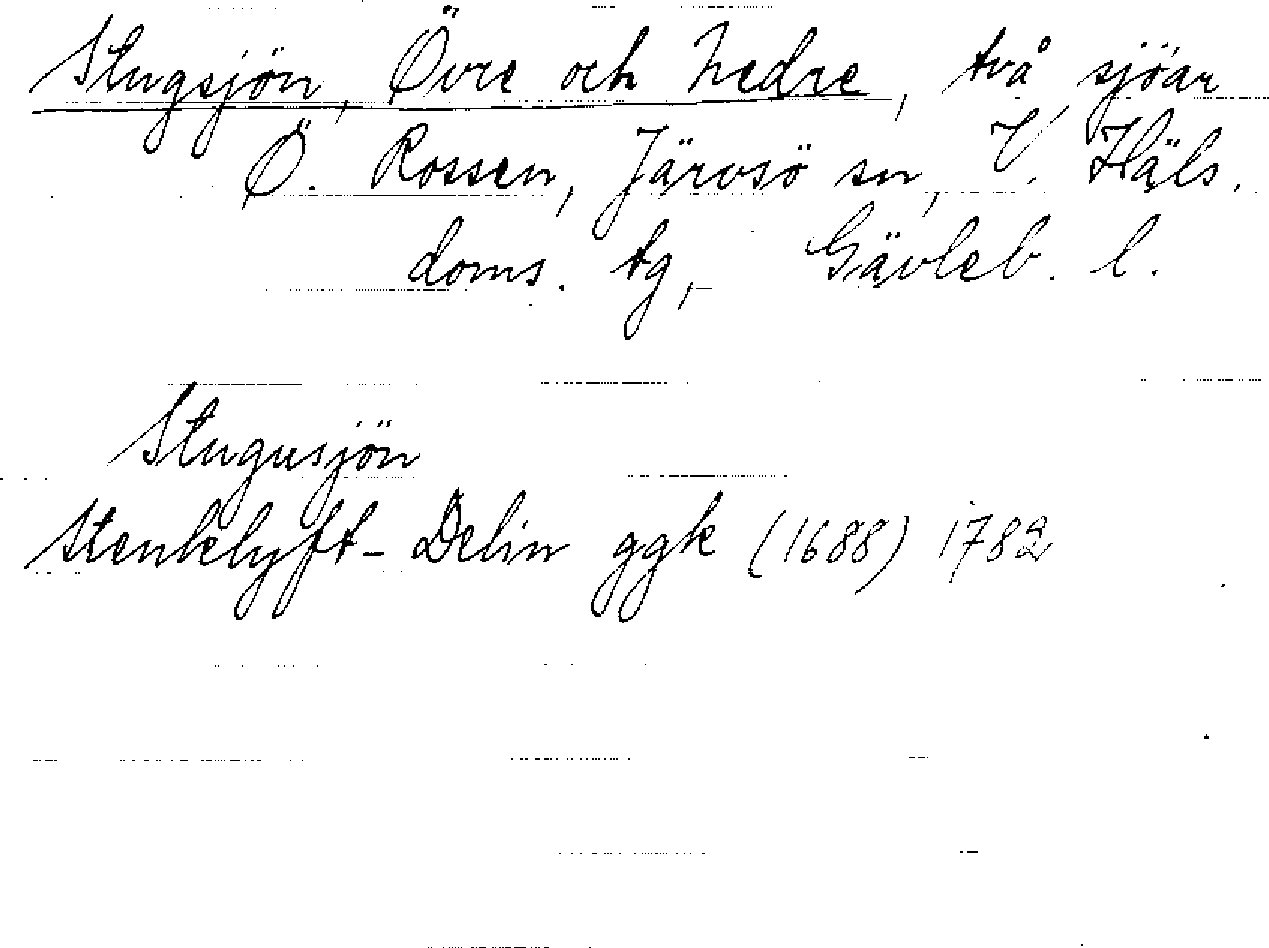 Stugsjön, Övre och Nedre, två sjöar
Ö. Rossen, Järvsö sn, V. Häls.
doms. tg, Gävleb. l.
Stugusjön
Stenklyft-Delin ggk (1688) 1782